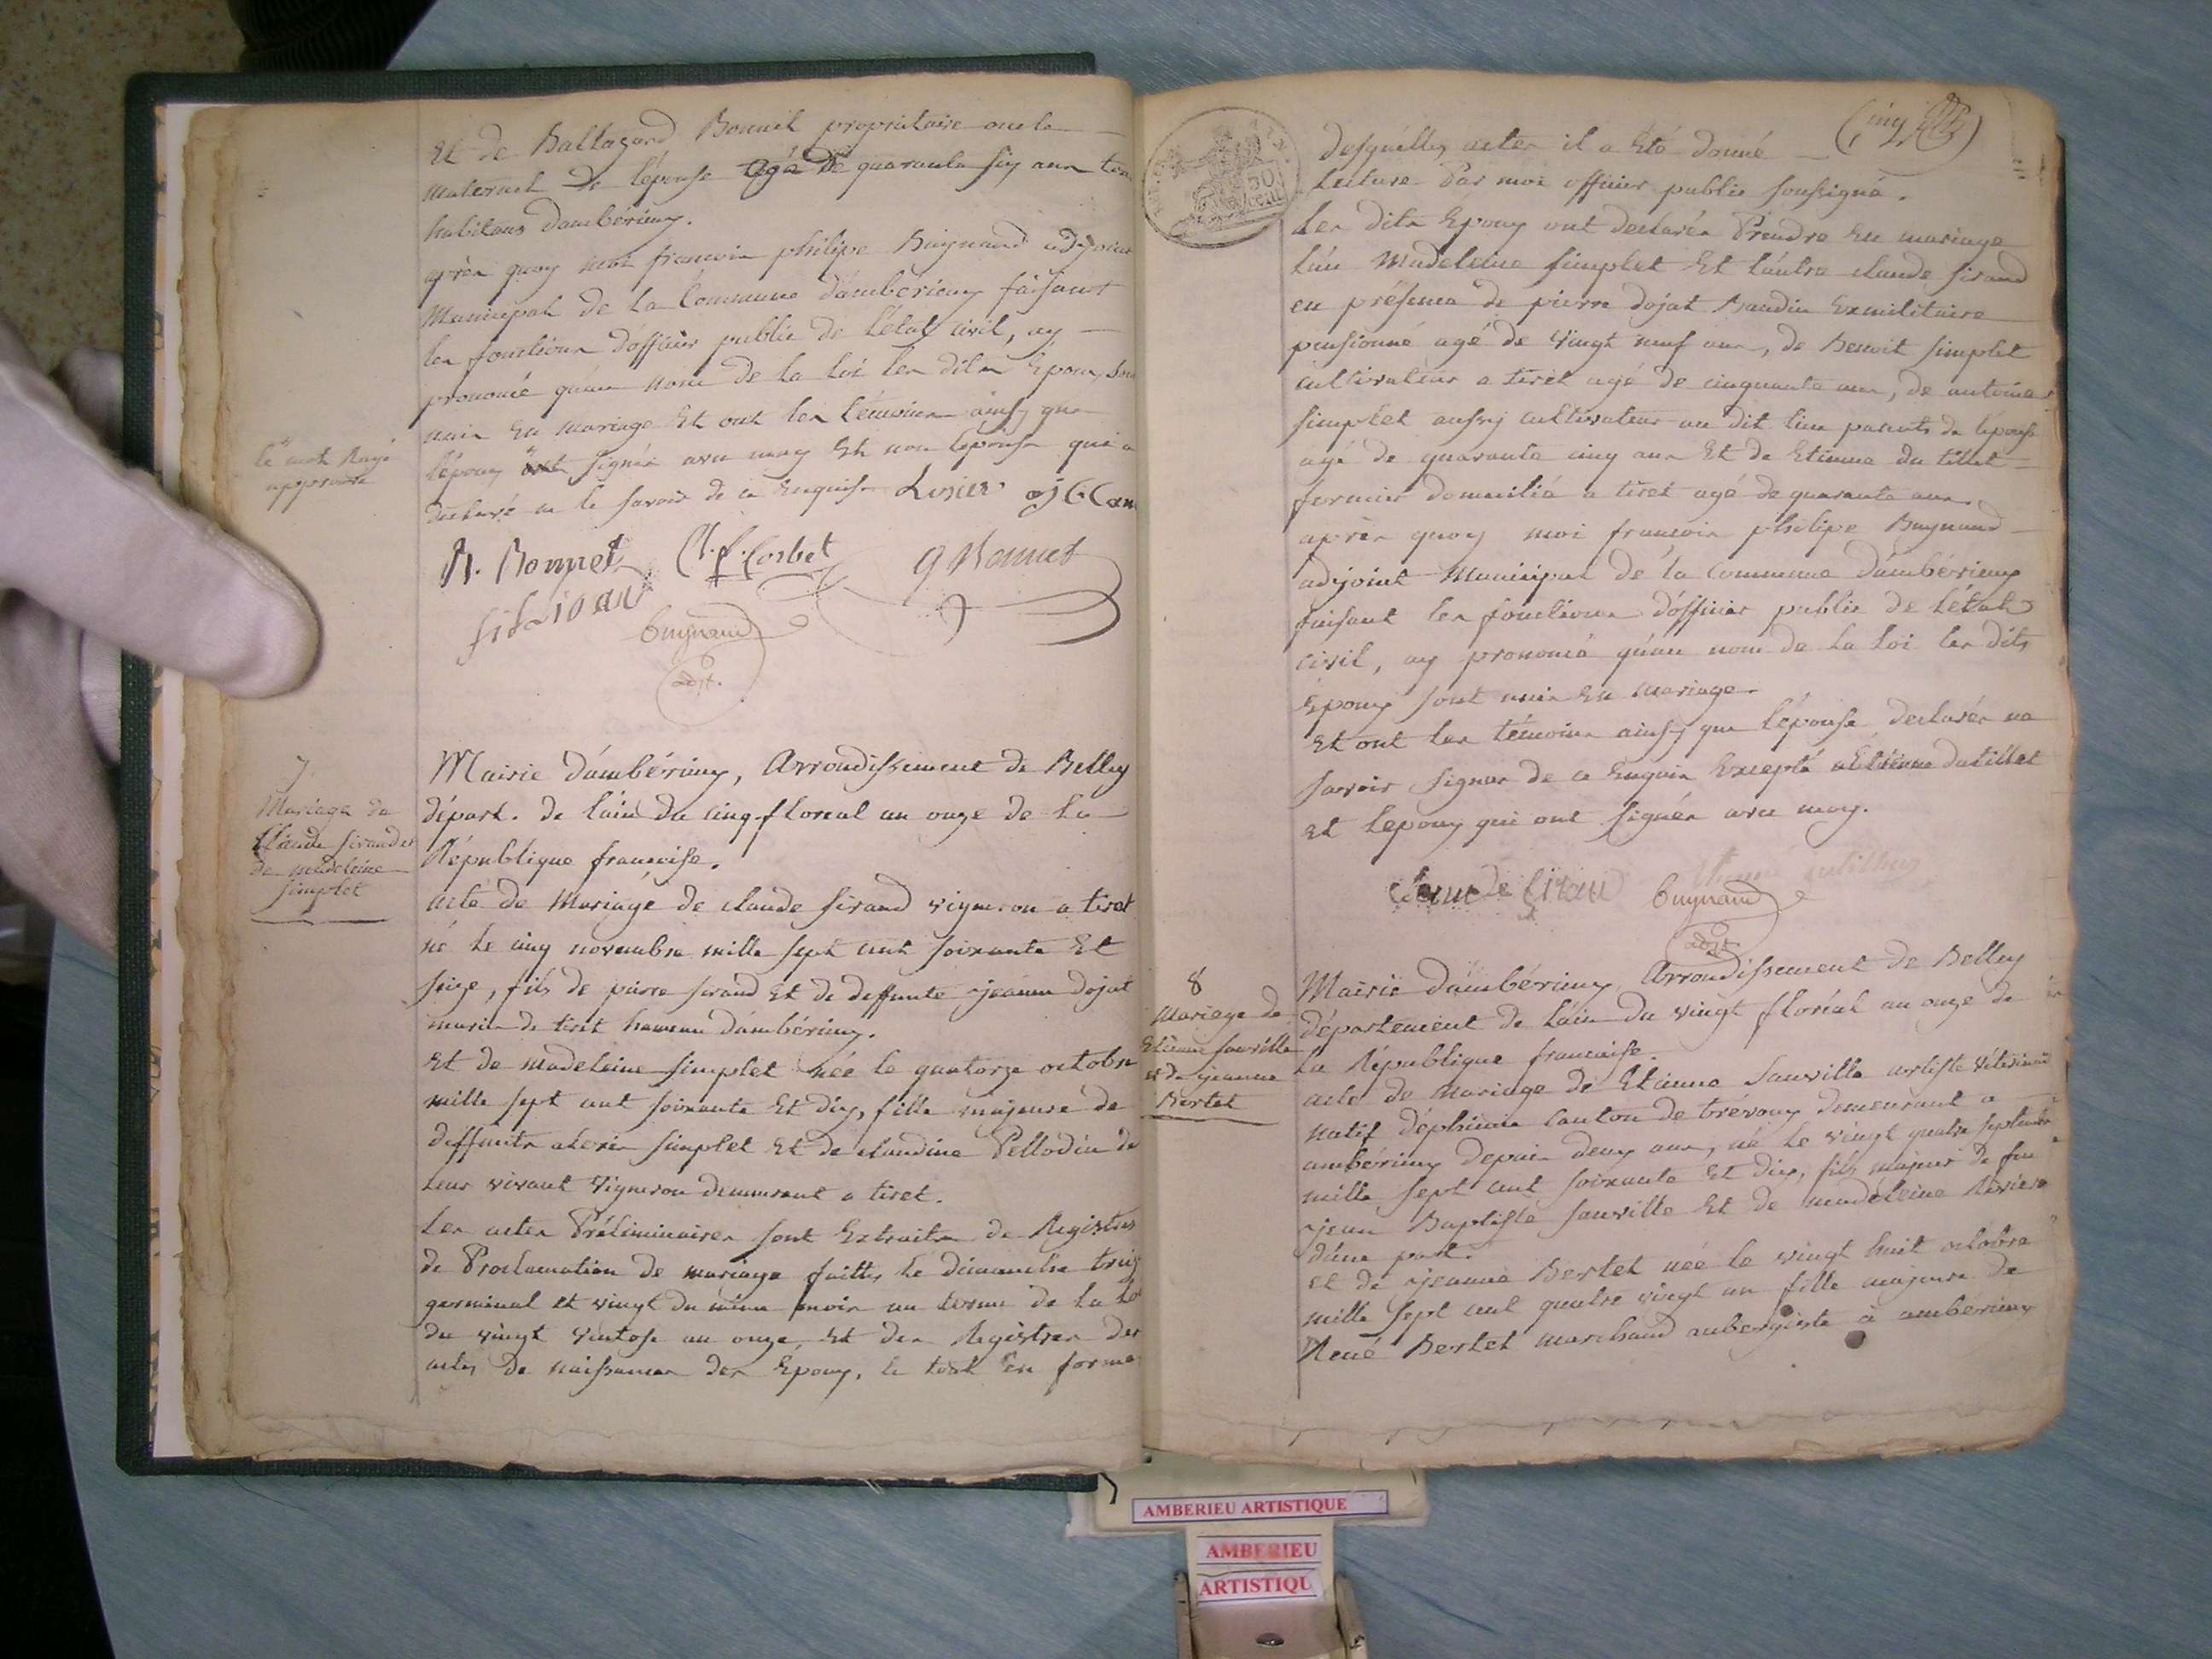 Et de Baltazard Bonnet propriétaire oncle
maternel de l'épouse agé de quarante six ans tous
habitans d'ambérieux.
après quoy moi francois philipe Buynand adjoint
Municipal de la Commune d'amberieux faisant
les fonctions d'officier public de l'etat civil, ay
prononcé qu'au nom de la loi les dits Epoux sont
unis En mariage Et ont les témoins ainsy que
l'époux signés avec moy Et non l'epouse qui a
declaré ne le savoir de ce Enquise
le mot Rayé
approuvé
B. Bonnet C. f. Corbet g Bonnet
Buynand
adjt.
7
Mariage de
Claude Sirand et
de madeleine
Simplet
Mairie d'ambérieux, Arrondissement de Belley
départ. de l'ain du cinq floreal an onze de la
République francaise.
acte de Mariage de claude Sirand vigneron a tiret
né le cinq novembre mille sept cent soixante Et
seize, fils de pierre Sirand Et de deffunte jeanne dojat
mariés de tiret hameau d'ambérieux.
Et de madeleine Simplet née le quatorze octobre
mille sept cent soixante Et dix, fille majeure de
deffunts alexis Simplet Et de claudine Pellodin de
leur vivant vigneron demeurant a tiret.
Les actes Préliminaires sont Extraits de Registres
de Proclamation de mariage faittes le dimanche treize
germinal et vingt du même mois au terme de la loi
du vingt ventose an onze, Et des Registres des
actes de naissances des Epoux, le tout En forme
(cinq
50
desquelles actes il a été donné
lecture Par moi officier public soussigné.
Les dits Epoux ont declarés Prendre En mariage
l'un Madeleine Simplet Et l'autre claude Sirand
en présence de pierre dojat Baudin Exmilitaire
pensionné agé de vingt neuf ans, de Benoit Simplet
cultivateur a tiret agé de cinquante ans, de antoine
Simplet aussy cultivateur au dit lieu parents de l'épouse
agé de quarante cinq ans Et de Etienne du tillet
fermier domicilié a tiret agé de quarante ans.
après quoy moi francois philipe Buynand
adjoint Municipal de la Commune d'ambérieux
faisant les fonctions d'officier public de l'état
civil, ay prononcé qu'au nom de la loi les dits
Epoux sont unis En mariage.
Et ont les témoins ainsy que l'épouse declarés ne
savoir signer de ce Enquis Excepté Etienne dutillet
et l'epoux qui ont signés avec moy.
claude Sirand Buynand
adjt
8
Mariage de
Etienne Sauville
et de jeanne
Bertet
Mairie d'ambérieux, Arrondissement de Belley
département de l'ain du vingt floréal an onze de
la République francaise.
acte de mariage de Etienne Sauville artiste Vétérinaire
natif canton de trévoux demeurant a
ambérieux depuis deux ans, né le vingt quatre septembre
mille sept cent soixante Et dix, fils majeur de feu
jean Baptiste Sauville Et de madeleine Riviere
d'une part.
et de jeanne Bertet née le vingt huit octobre
mille sept cent quatre vingt un fille majeure de
René Bertet marchand aubergiste à ambérieux
AMBERIEU ARTISTIQUE
AMBERIEU
ARTISTIQU